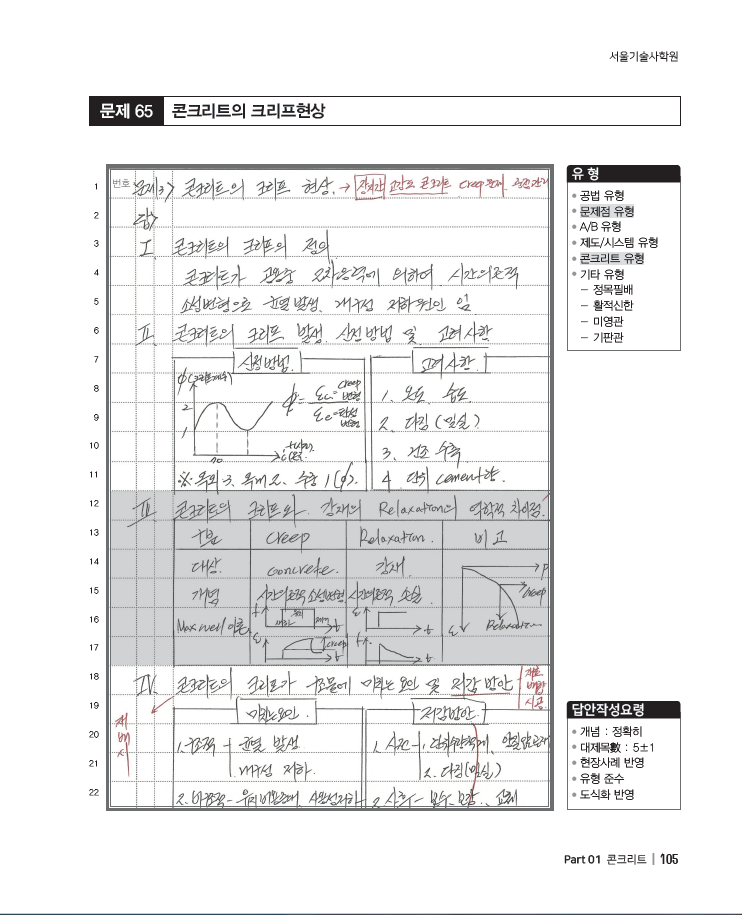 서울기술사학원
문제 65 콘크리트의 크리프현상
번호
1 문제3) 콘크리트의 크리프 현상. → 장시간 고강도 콘크리트 Creep문제.
2 답)
3 I. 콘크리트의 크리프의 정의
4 콘크리트가 의하여 시간의존적
5 소성변형으로 균열발생. 내구성 저하원인 임
6 II. 콘크리트의 크리프 발생. 산정방법 및 고려사항
7 산정방법. 고려사항.
8 φ(크리프계수) 2 φ= εc: creep변형 1. 온도 습도
9 1 εe: 탄성변형 2. 다짐(밀실)
10 3. 건조수축
11 ※ 옥외 3. 옥내 2. 수중 1(φ). 4. 단위 cement량.
12 III. 콘크리트의 크리프와 강재의 Relaxation의 역학적 차이점.
13 구분 creep Relaxation. 비고
14 대상. concrete. 강재. P
15 개념 시간의존적 소성변형. 시간의존적 손실. creep
16 Maxwell 이론. f t ε t ε Relaxation
17 ε creep t f t
18 IV. 콘크리트의 크리프가 구조물에 미치는 요인 및 저감방안 재료 배합 시공
19 미치는요인. 저감방안.
20 1. 구조적 - 균열 발생
21 내구성 저하. 2. 다짐(밀실)
22 2. 비구조적- 2. 사후- 보수. 보강. 교체
재 배 시
유 형
• 공법 유형
• 문제점 유형
• A/B 유형
• 제도/시스템 유형
• 콘크리트 유형
• 기타 유형
– 정목필배
– 활적신한
– 미영관
– 기판관
답안작성요령
• 개념 : 정확히
• 대제목數 : 5±1
• 현장사례 반영
• 유형 준수
• 도식화 반영
Part 01 콘크리트 | 105